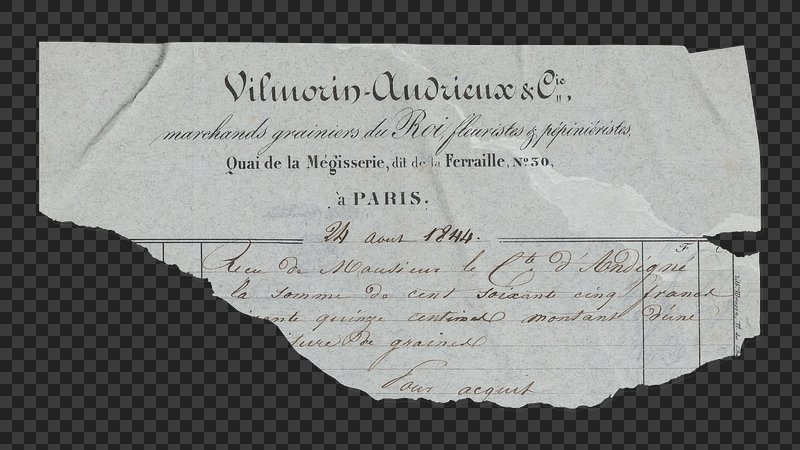 Vilmorin-Andrieux & Cie,
marchands grainiers du Roi, fleuristes & pépiniéristes,
Quai de la Mégisserie, dit de la Ferraille, No 30,
à PARIS.
24 aout 1844.
F. C
Recu de Monsieur le Cte d'Andigné
la somme de cent soixante cinq francs
quinze centimes montant d'une
de graines
Pour acquit